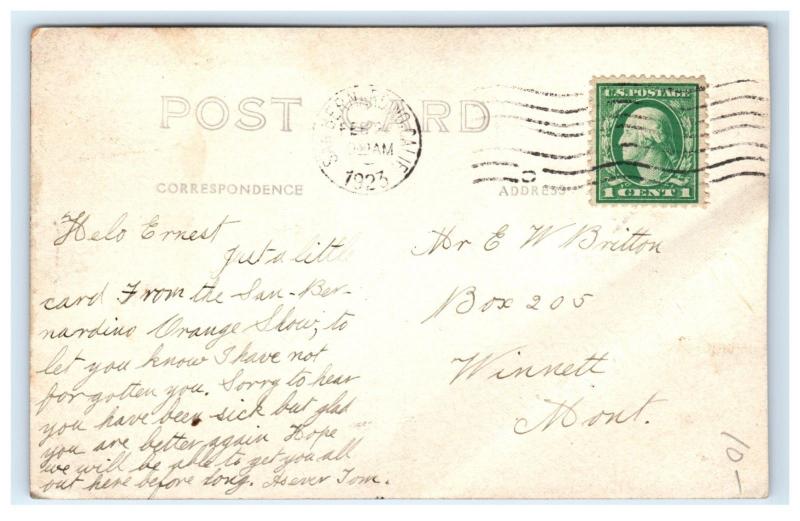 POST CARD
SAN BERNARDINO CALIF
FEB
AM
1923
U.S. POSTAGE
1 CENT 1
CORRESPONDENCE
ADDRESS
Helo Ernest
Just a little
card From the San-Ber-
nardino Orange Show, to
let you know I have not
forgotten you. Sorry to hear
you have been sick but glad
you are better again Hope
we will be able to get you all
out here before long. As ever Tom.
Mr E W Britton
Box 205
Winnett
Mont.
10-